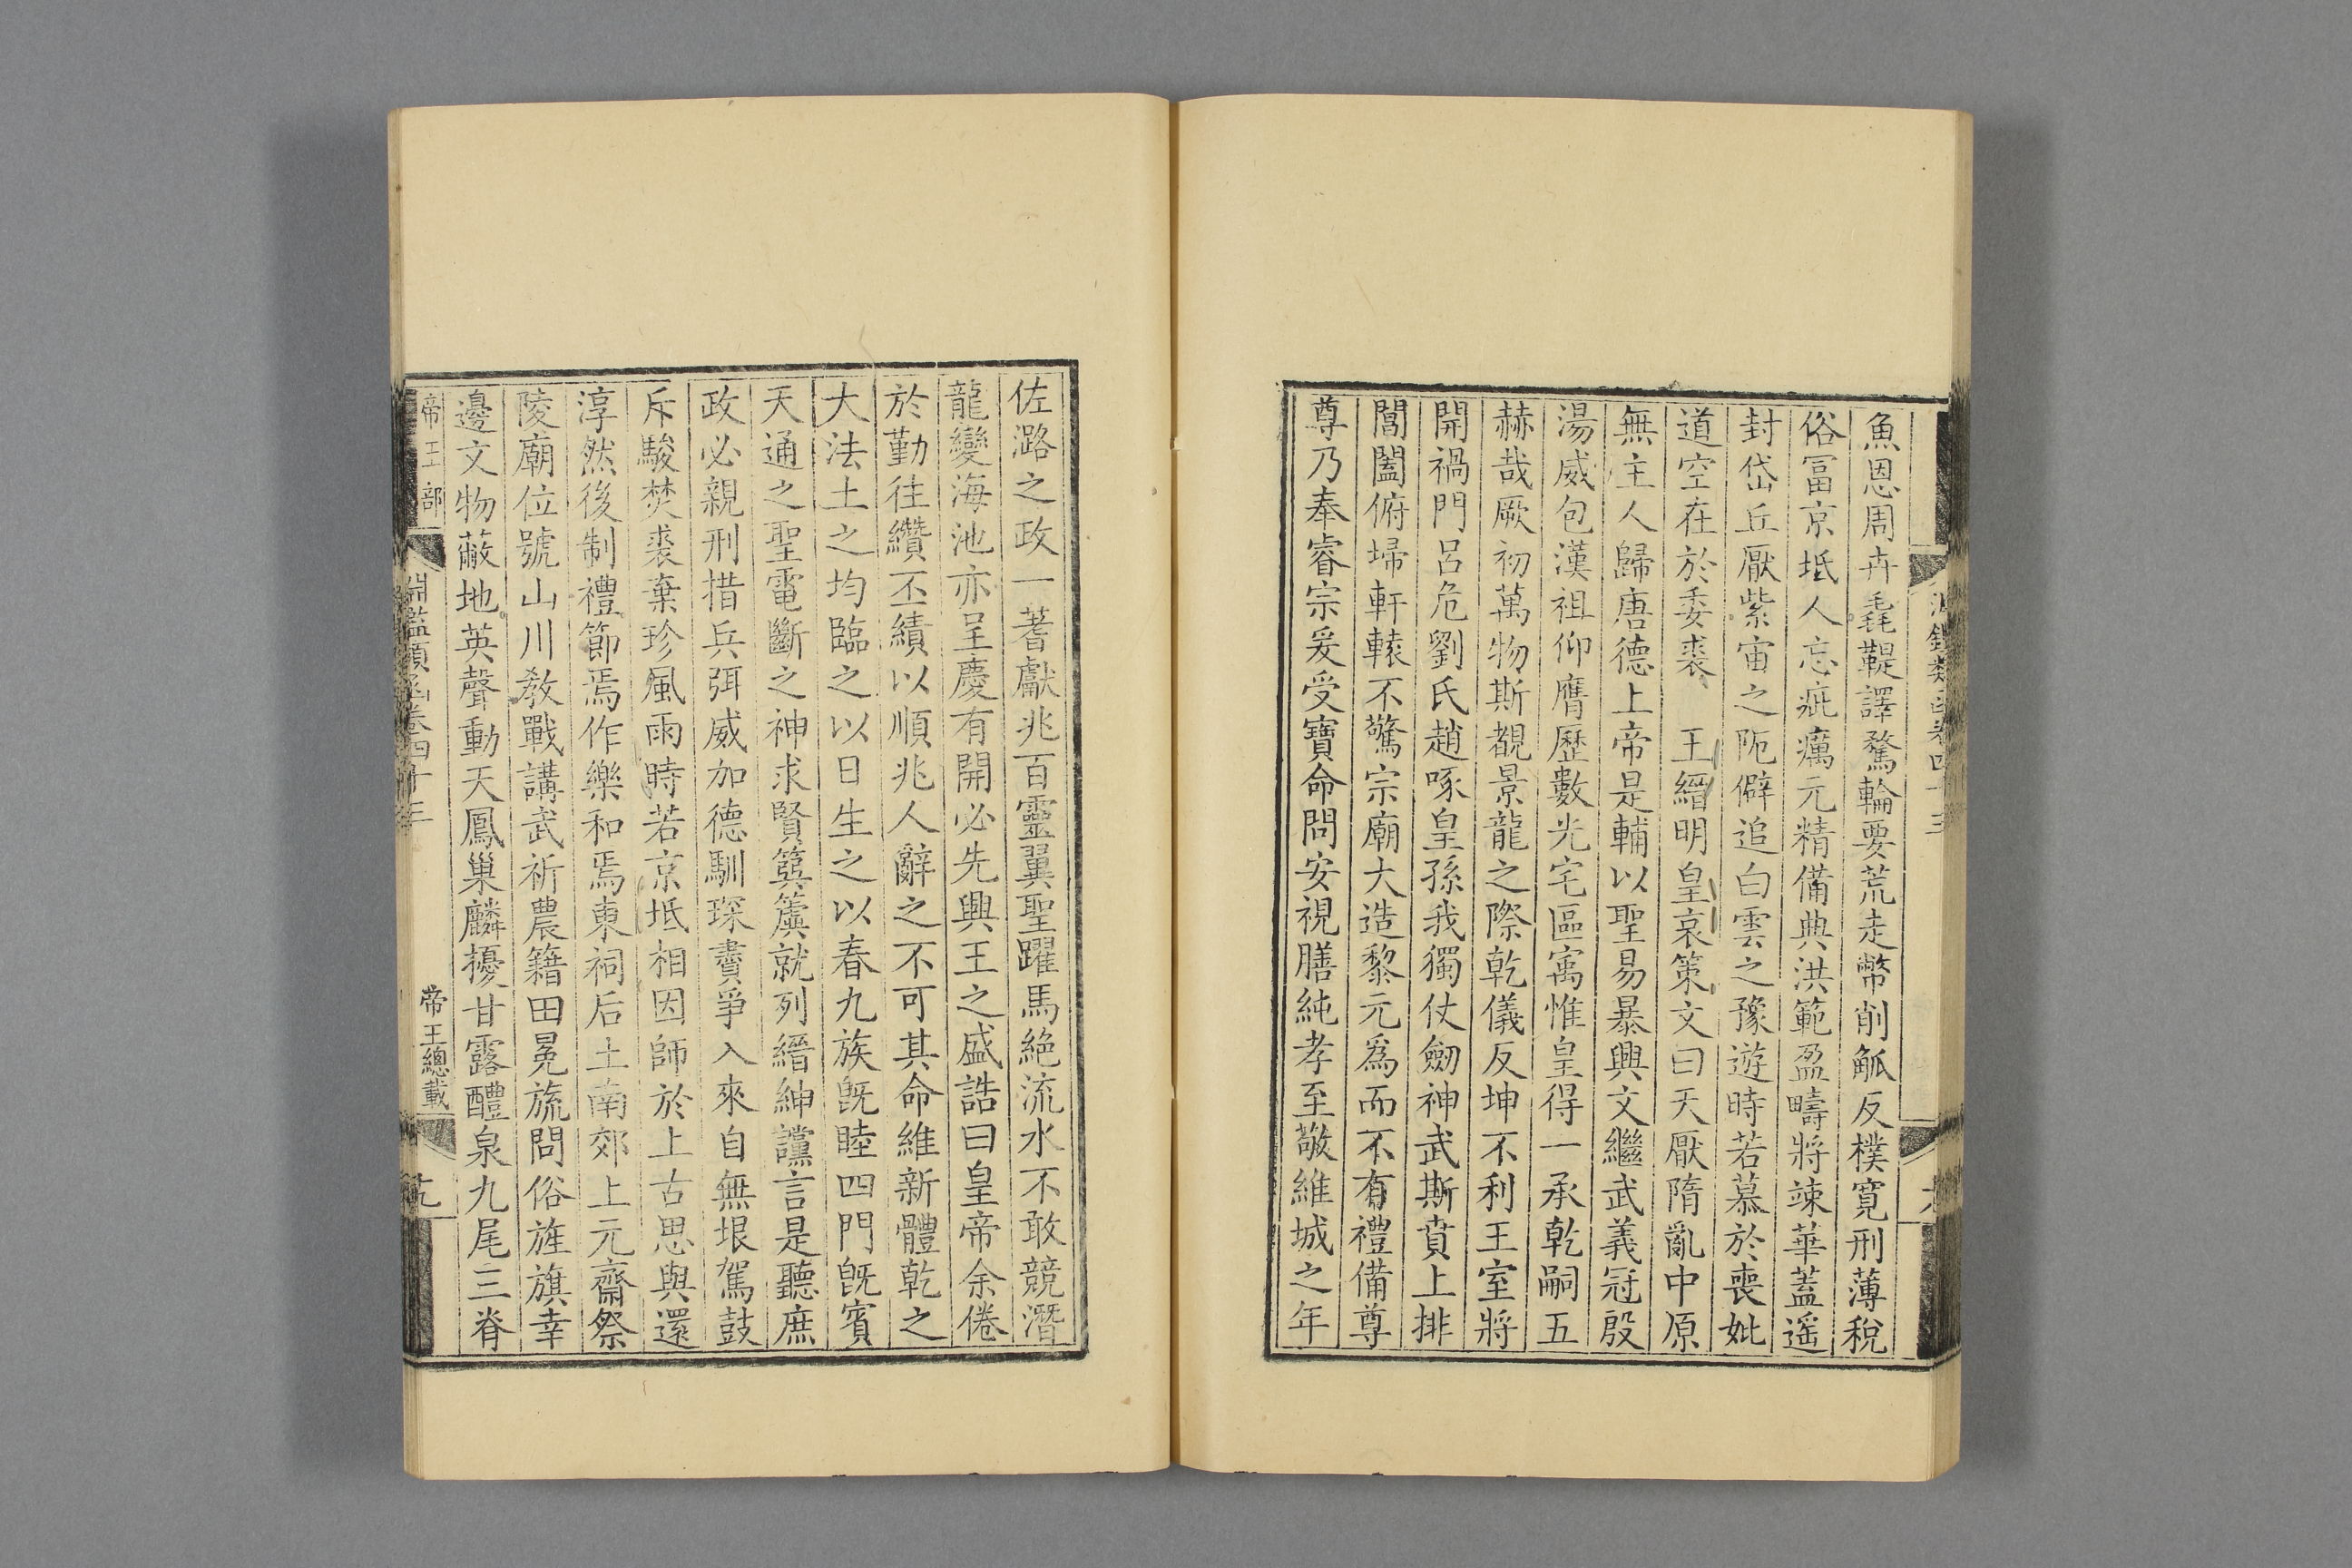 魚恩周卉毳鞮譯騖輪要荒走幣削觚反樸寬刑薄稅
俗富京坻人忘疵癘元精備典洪範盈疇將竦華蓋遙
封岱丘厭紫宙之阨僻追白雲之豫遊時若慕於喪妣
道空在於委裘　王縉明皇哀策文曰天厭隋亂中原
無主人歸唐德上帝是輔以聖易暴興文繼武義冠殷
湯威包漢祖仰膺歷數光宅區寓惟皇得一承乾嗣五
赫哉厥初萬物斯覩景龍之際乾儀反坤不利王室將
開禍門呂危劉氏趙啄皇孫我獨仗劒神武斯賁上排
閶闔俯埽軒轅不驚宗廟大造黎元爲而不有禮備尊
尊乃奉睿宗爰受寶命問安視膳純孝至敬維城之年
佐潞之政一蓍獻兆百靈翼聖躍馬絶流水不敢競潛
龍變海池亦呈慶有開必先興王之盛誥曰皇帝余倦
於勤往纘丕績以順兆人辭之不可其命維新體乾之
大法土之均臨之以日生之以春九族旣睦四門旣賓
天通之聖電斷之神求賢筼簴就列縉紳讜言是聽庶
政必親刑措兵弭威加德馴琛賮爭入來自無垠駕鼓
斥駿焚裘棄珍風雨時若京坻相因師於上古思與還
淳然後制禮節焉作樂和焉東祠后土南郊上元齋祭
陵廟位號山川教戰講武祈農籍田冕旒問俗旌旗幸
邊文物蔽地英聲動天鳳巢麟擾甘露醴泉九尾三脊
帝王部
淵鑑類函卷四十三
帝王總載